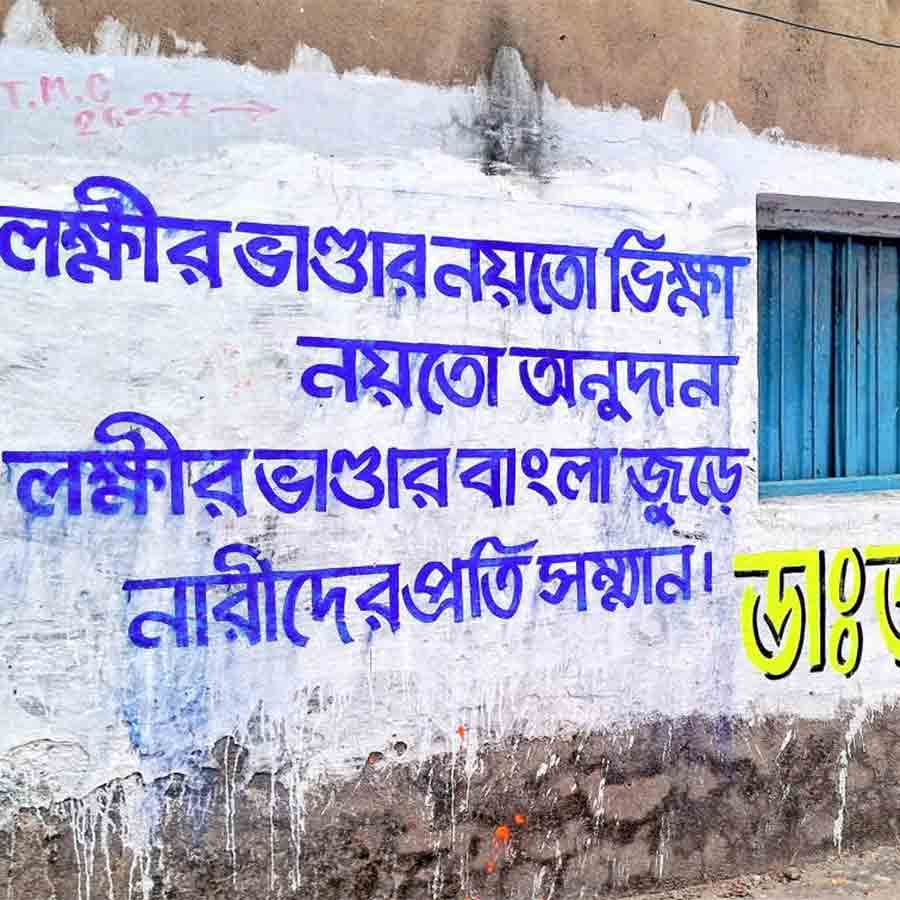 T.M.C
26-27 →
লক্ষ্মীর ভাণ্ডার নয়তো ভিক্ষা
নয়তো অনুদান
লক্ষ্মীর ভাণ্ডার বাংলা জুড়ে
নারীদের প্রতি সম্মান।
ডাঃ